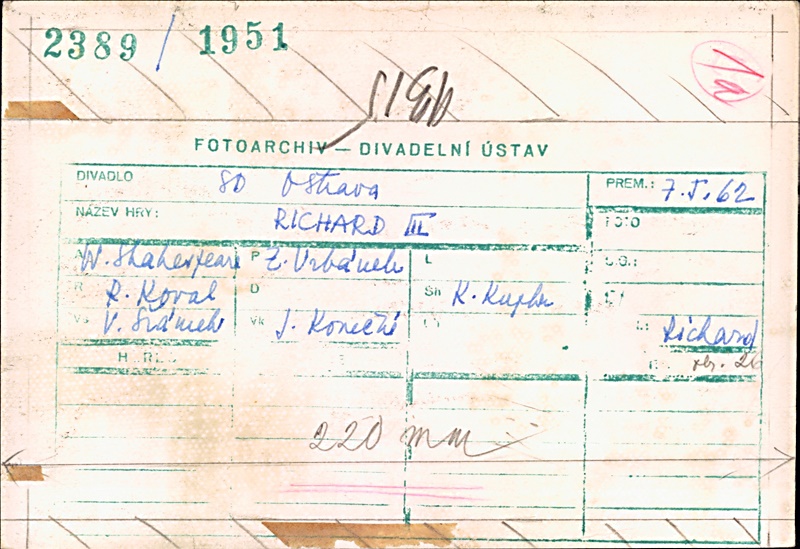 2389 / 1951
1a
FOTOARCHIV — DIVADELNÍ ÚSTAV
DIVADLO SD Ostrava PREM.: 7.I.62
NÁZEV HRY: RICHARD III FOTO
A W. Shakespeare P Z. Vrbánek L
R R. Koval D Sh K. Kupka
Vs V. Šrámek Vk J. Konečný Richard
220 mm